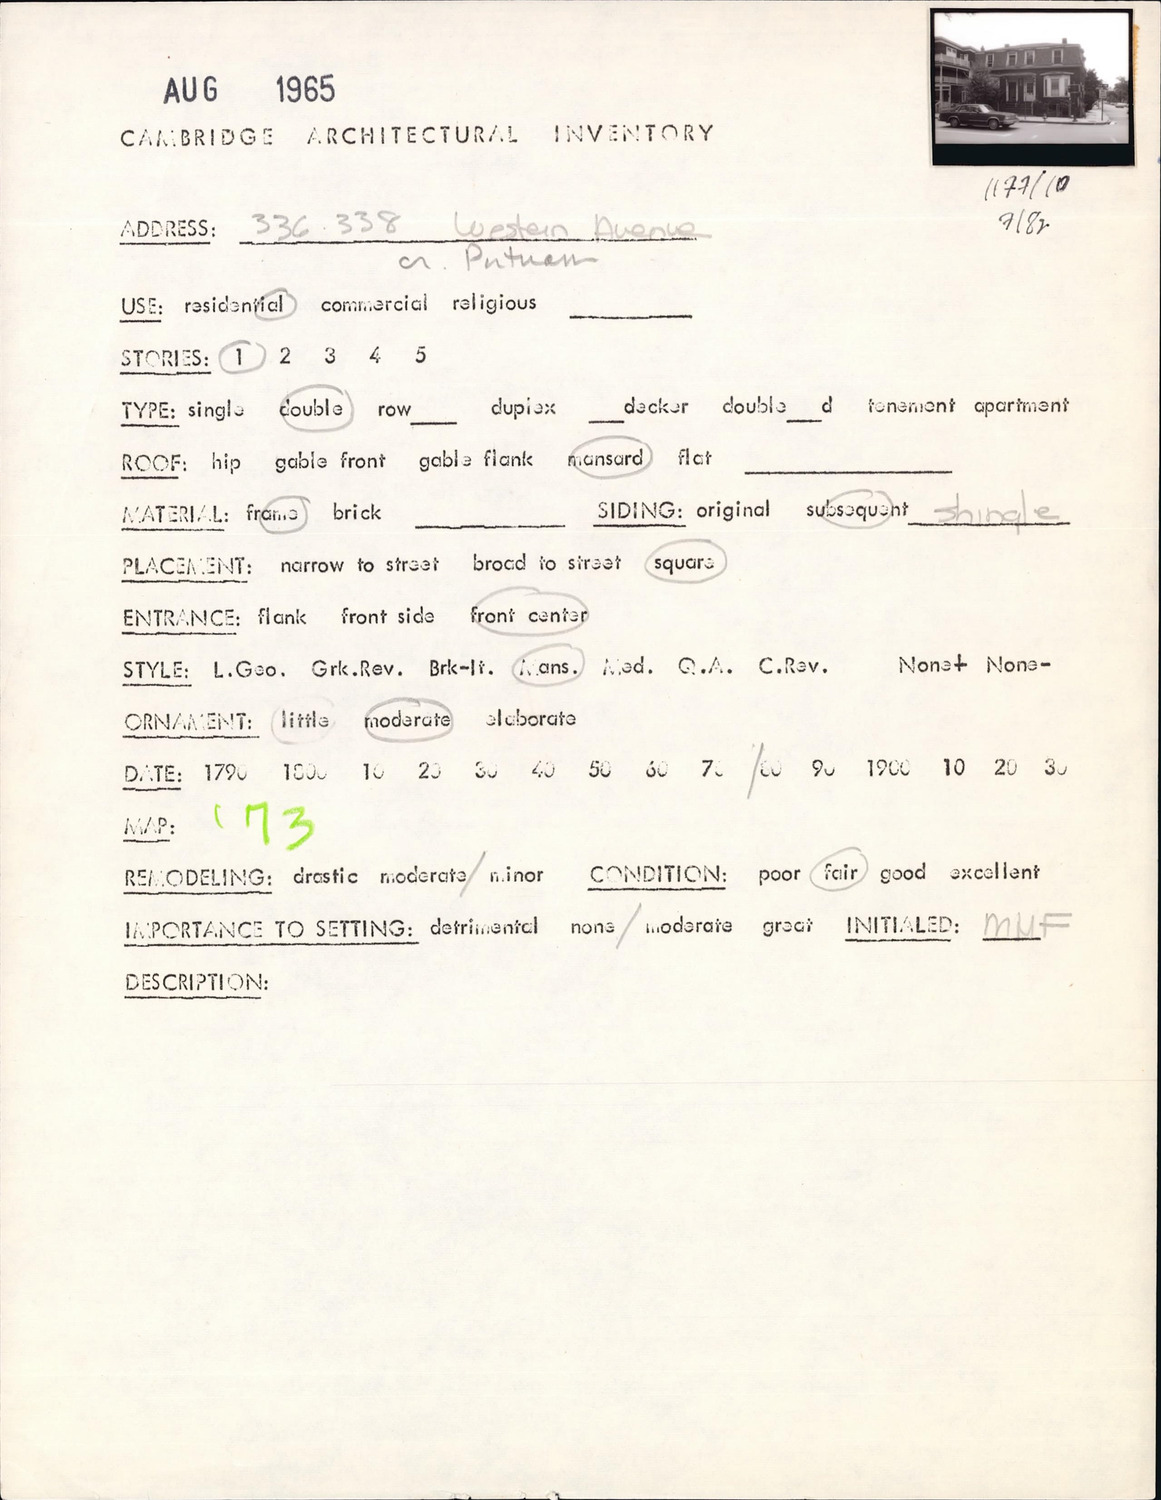 AUG 1965
CAMBRIDGE ARCHITECTURAL INVENTORY
1177/10
9/82
ADDRESS: 336-338 Western Avenue
cr. Putnam
USE: residential commercial religious
STORIES: 1 2 3 4 5
TYPE: single double row___ duplex ___decker double___d tenement apartment
ROOF: hip gable front gable flank mansard flat
MATERIAL: frame brick SIDING: original subsequent shingle
PLACEMENT: narrow to street broad to street square
ENTRANCE: flank front side front center
STYLE: L.Geo. Grk.Rev. Brk-It. Mans. Med. Q.A. C.Rev. None+ None-
ORNAMENT: little moderate elaborate
DATE: 1790 1800 10 20 30 40 50 60 70 / 80 90 1900 10 20 30
MAP: '73
REMODELING: drastic moderate / minor CONDITION: poor fair good excellent
IMPORTANCE TO SETTING: detrimental none / moderate great INITIALED: MMF
DESCRIPTION: